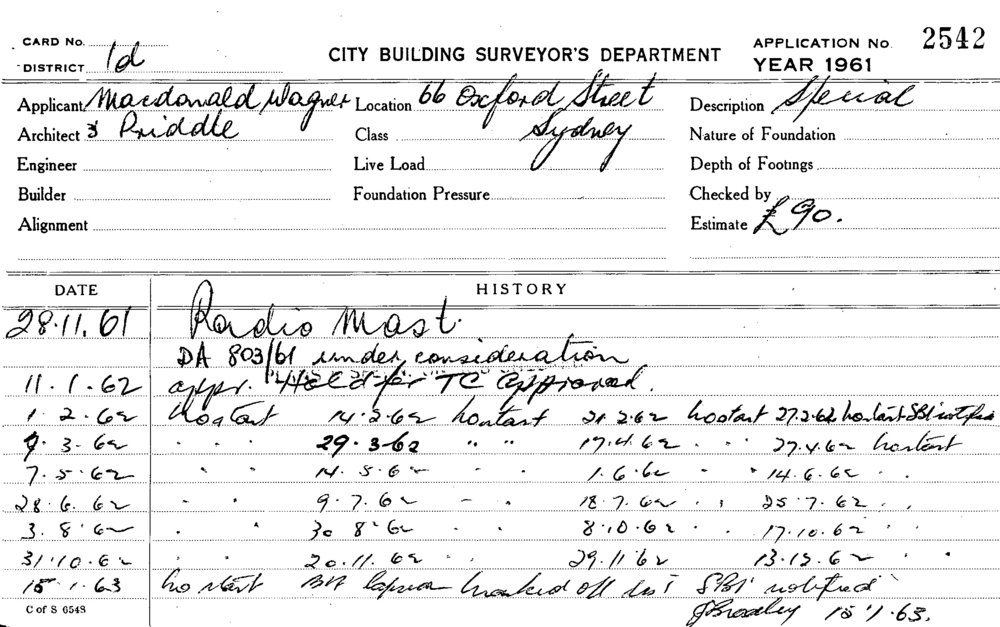 CARD No.
DISTRICT 1d
CITY BUILDING SURVEYOR'S DEPARTMENT
APPLICATION No. 2542
YEAR 1961
Applicant Macdonald Wagner Location 66 Oxford Street Description Special
Architect & Priddle Class Sydney Nature of Foundation
Engineer Live Load Depth of Footings
Builder Foundation Pressure Checked by
Alignment Estimate £90.
DATE HISTORY
28.11.61 Radio Mast.
DA 803/61 under consideration
11.1.62 appr. Held for TC approval.
1.2.62 no start 14.2.62 no start 21.2.62 no start 27.2.62 no start SBI notified
9.3.62 " " 29.3.62 " " 17.4.62 " " 27.4.62 no start
7.5.62 " " 14.5.62 " " 1.6.62 " " 14.6.62 " "
28.6.62 " " 9.7.62 " " 18.7.62 " " 25.7.62 " "
3.8.62 " " 30.8.62 " " 8.10.62 " " 17.10.62 " "
31.10.62 " " 20.11.62 " " 29.11.62 13.12.62 " "
15.1.63 no start BA marked off list SBI notified
15.1.63.
C of S 6548